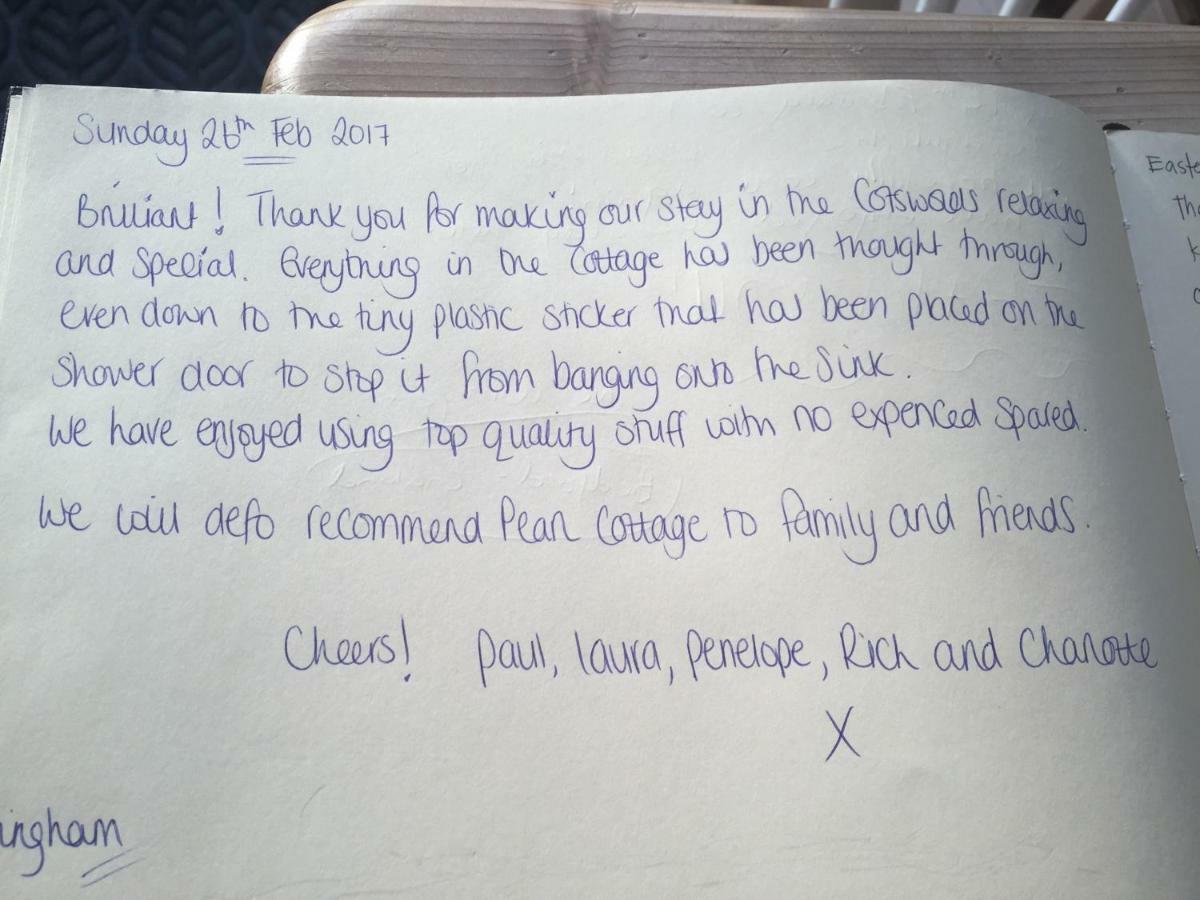 Sunday 26th Feb 2017
Brilliant! Thank you for making our stay in the Cotswools relaxing
and special. Everything in the Cottage has been thought through,
even down to the tiny plastic sticker that has been placed on the
shower door to stop it from banging onto the sink.
We have enjoyed using top quality stuff with no expenced spared.
We will defo recommend Pear Cottage to family and friends.
Cheers! Paul, Laura, Penelope, Rich and Charlotte
X
ingham
Easte
the